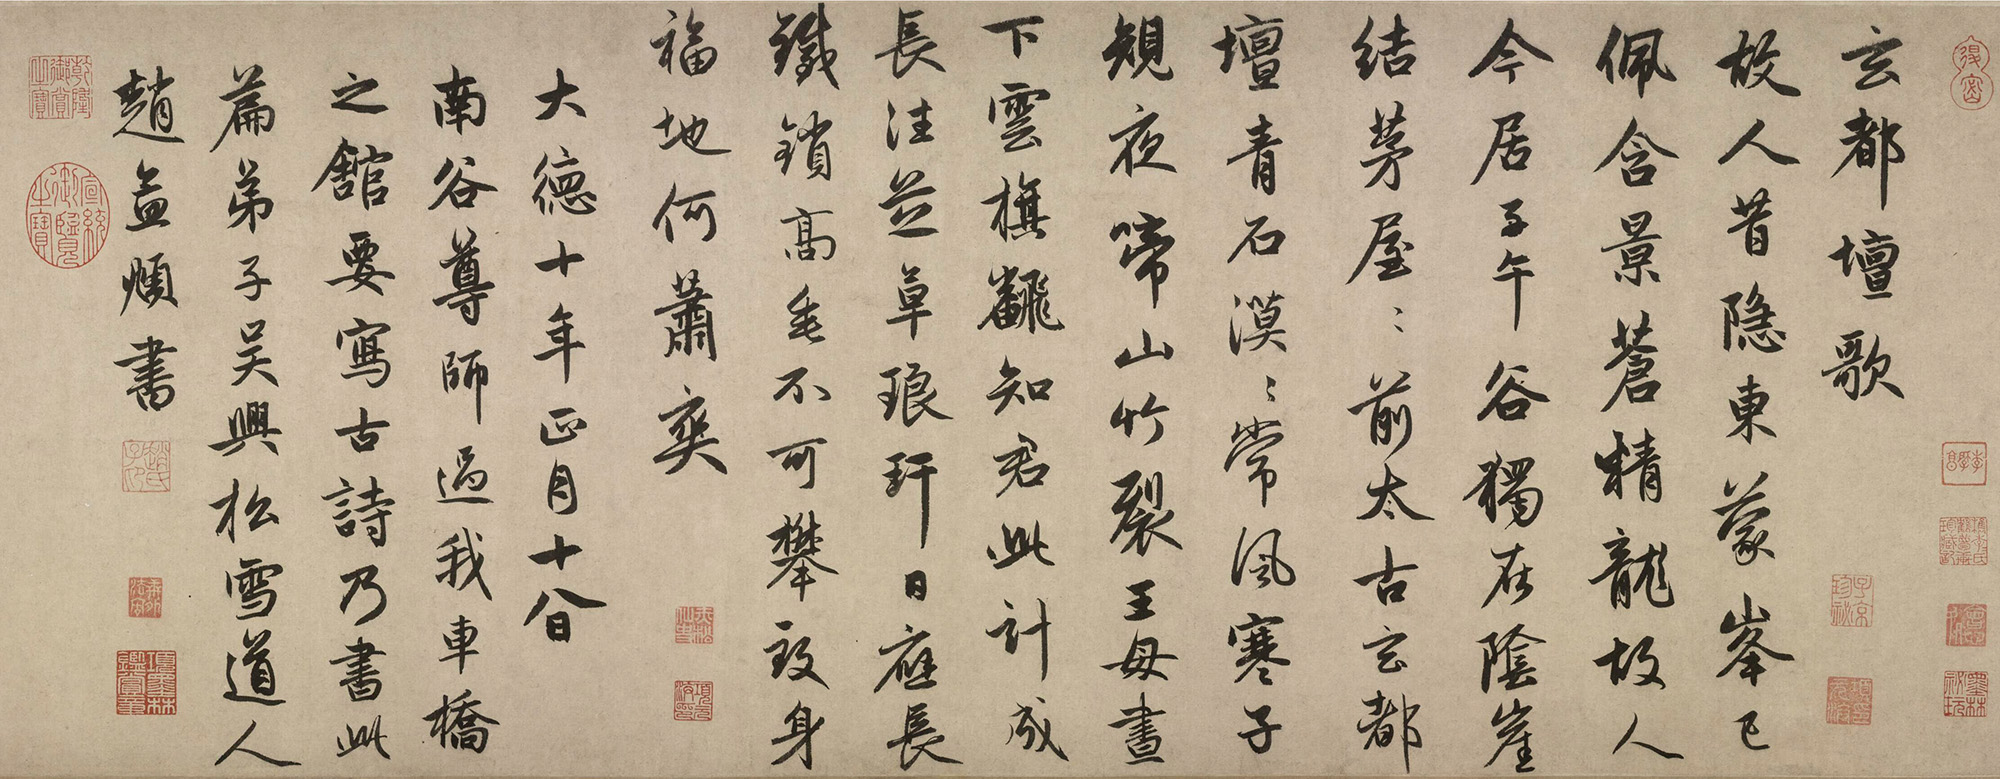 玄都壇歌
故人昔隐東蒙峯已
佩含景蒼精龍故人
今居子午谷獨在陰崖
結茅屋〻前太古玄都
壇青石漠〻常風寒子
規夜啼山竹裂王母晝
下雲旗飜知君此計成
長往芝草琅玕日應長
鐵鎖高垂不可攀致身
福地何蕭爽
大德十年正月十八日
南谷尊師過我車橋
之舘要寫古詩乃書此
篇弟子吳興松雪道人
趙孟頫書
乾隆御賞之寶
宣統御覽之寶
項墨林鑑賞章
墨林祕玩